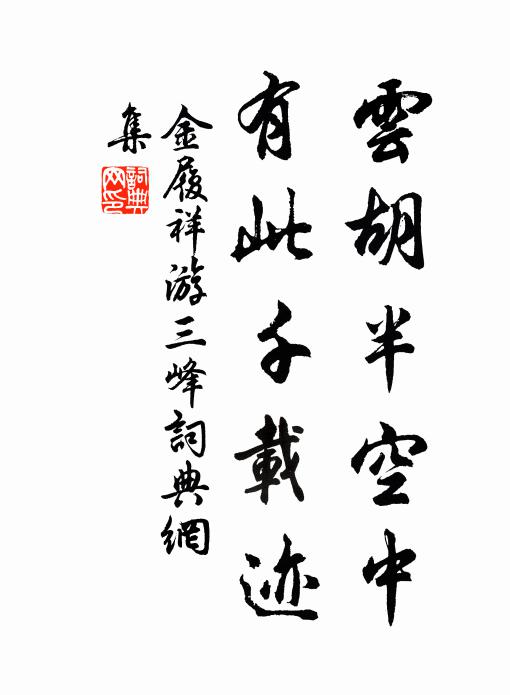 雲胡半空中
有此千載迹
金履祥游三峰詞典網
集
詞典网印